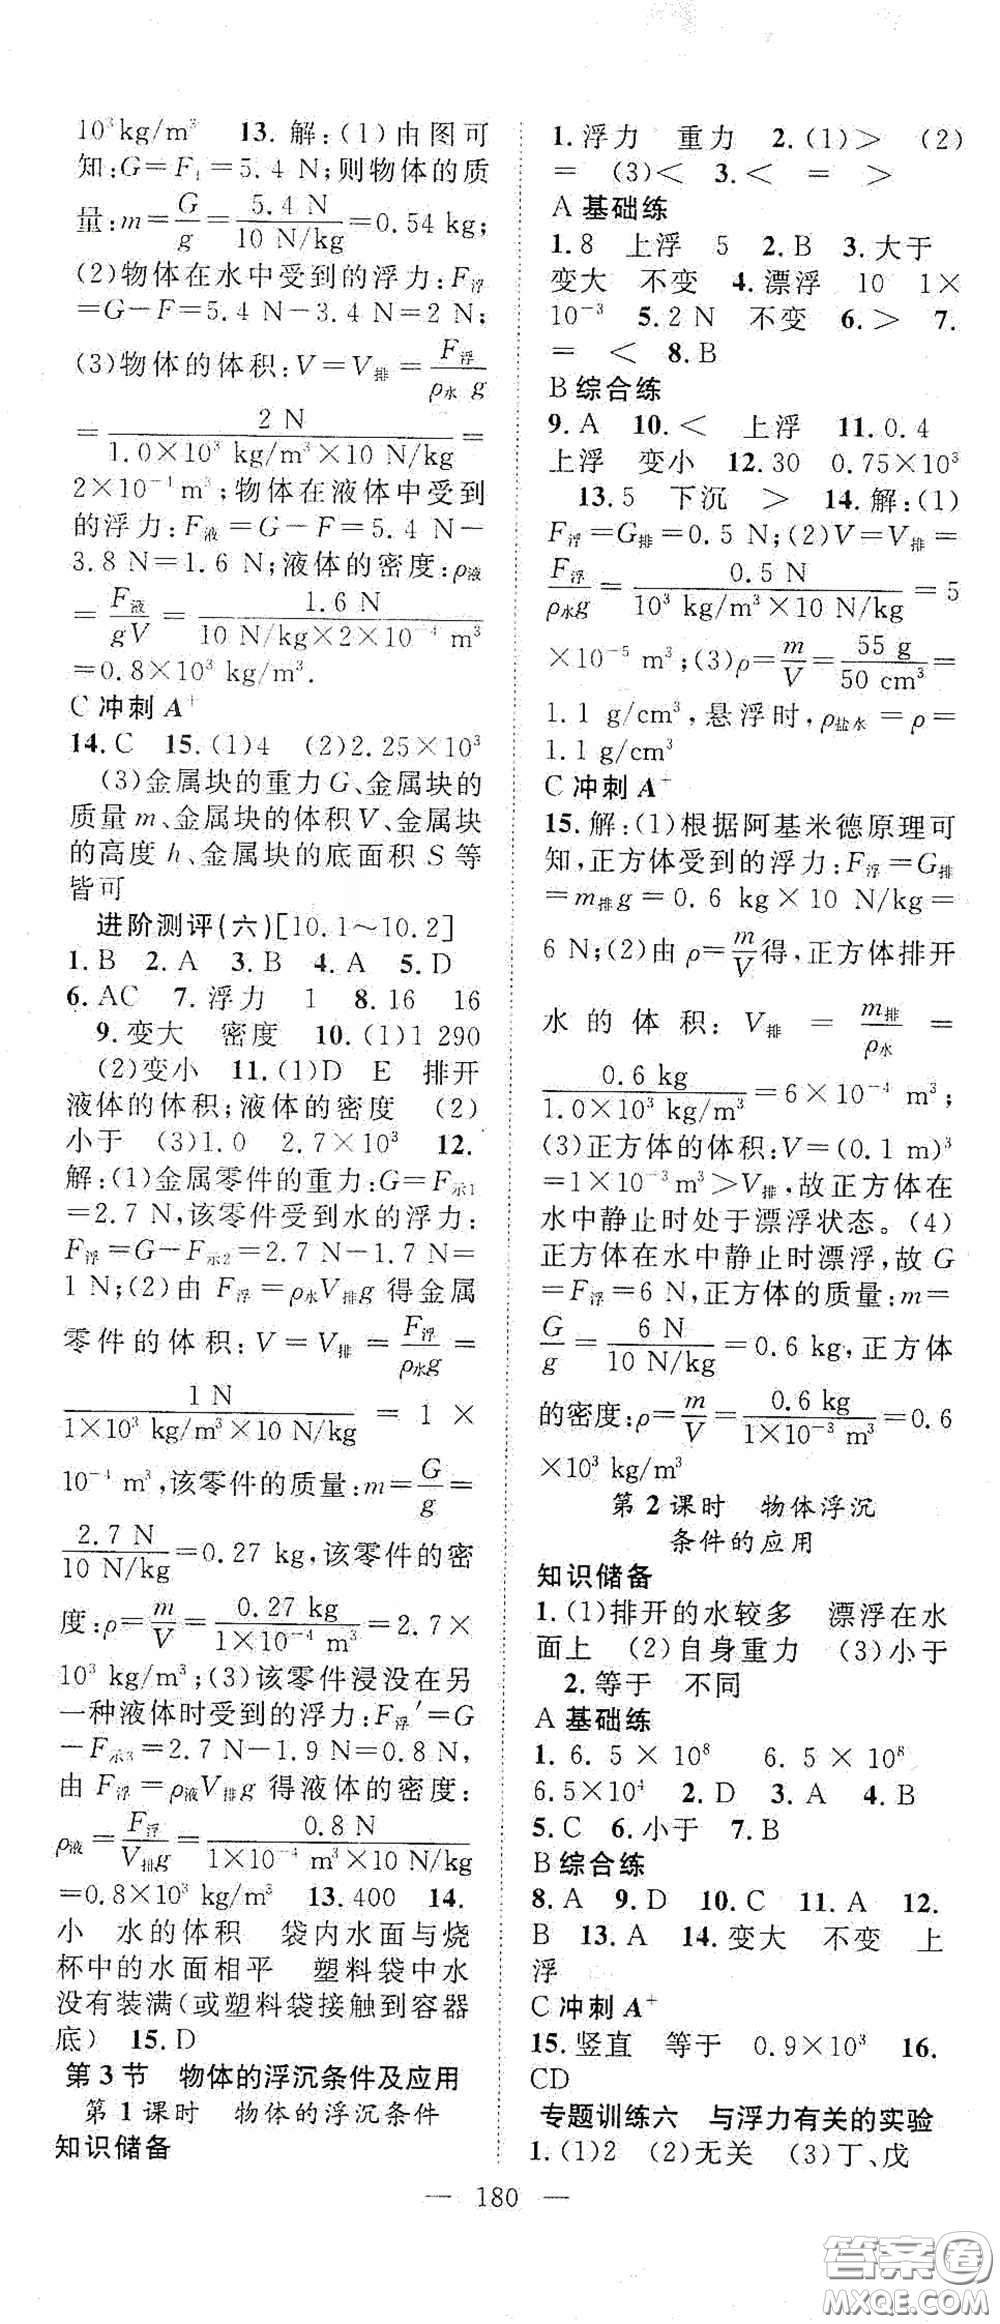 10³kg/m³ 13. 解:(1)由图可
知:G=F₁=5.4 N;则物体的质
量:m=G/g=5.4 N/10 N/kg=0.54 kg;
(2)物体在水中受到的浮力:F浮
=G-F=5.4 N-3.4 N=2 N;
(3)物体的体积:V=V排=F浮/ρ水 g
=2 N/1.0×10³ kg/m³×10 N/kg=
2×10⁻⁴m³;物体在液体中受到
的浮力:F液=G-F=5.4 N-
3.8 N=1.6 N;液体的密度:ρ液
=F液/gV=1.6 N/10 N/kg×2×10⁻⁴ m³
=0.8×10³ kg/m³.
C 冲刺 A⁺
14.C 15.(1)4 (2)2.25×10³
(3)金属块的重力G、金属块的
质量 m、金属块的体积 V、金属块
的高度 h、金属块的底面积 S 等
皆可
进阶测评(六)[10.1~10.2]
1.B 2.A 3.B 4.A 5.D
6.AC 7.浮力 1 8.16 16
9.变大 密度 10.(1)1 290
(2)变小 11.(1)D E 排开
液体的体积;液体的密度 (2)
小于 (3)1.0 2.7×10³ 12.
解:(1)金属零件的重力:G=F示1
=2.7 N,该零件受到水的浮力:
F浮=G-F示2=2.7 N-1.7 N=
1 N;(2)由 F浮=ρ水V排g 得金属
零件的体积:V=V排=F浮/ρ水g=
1 N/1×10³ kg/m³×10 N/kg=1×
10⁻⁴ m³,该零件的质量:m=G/g=
2.7 N/10 N/kg=0.27 kg,该零件的密
度:ρ=m/V=0.27 kg/1×10⁻⁴ m³=2.7×
10³ kg/m³;(3)该零件浸没在另
一种液体时受到的浮力:F浮′=G
-F示3=2.7 N-1.9 N=0.8 N,
由 F浮=ρ液V排g 得液体的密度:
ρ液=F浮/V排g=0.8 N/1×10⁻⁴ m³×10 N/kg
=0.8×10³ kg/m³ 13.400 14.
小 水的体积 袋内水面与烧
杯中的水面相平 塑料袋中水
没有装满(或塑料袋接触到容器
底) 15.D
第3节 物体的浮沉条件及应用
第1课时 物体的浮沉条件
知识储备
1.浮力 重力 2.(1)> (2)
= (3)< 3.< = >
A 基础练
1.8 上浮 5 2.B 3.大于
变大 不变 4.漂浮 10 1×
10⁻³ 5.2 N 不变 6.> 7.
= < 8.B
B 综合练
9.A 10.< 上浮 11.0.4
上浮 变小 12.30 0.75×10³
13.5 下沉 > 14.解:(1)
F浮=G排=0.5 N;(2)V=V排=
F浮/ρ水g=0.5 N/10³ kg/m³×10 N/kg=5
×10⁻⁵ m³;(3)ρ=m/V=55 g/50 cm³=
1.1 g/cm³,悬浮时,ρ盐水=ρ=
1.1 g/cm³
C 冲刺 A⁺
15.解:(1)根据阿基米德原理可
知,正方体受到的浮力:F浮=G排
=m排g=0.6 kg×10 N/kg=
6 N;(2)由 ρ=m/V得,正方体排开
水的体积:V排=m排/ρ水=
0.6 kg/1.0×10³ kg/m³=6×10⁻⁴ m³;
(3)正方体的体积:V=(0.1 m)³
=1×10⁻³m³>V排,故正方体在
水中静止时处于漂浮状态。(4)
正方体在水中静止时漂浮,故 G
=F浮=6 N,正方体的质量:m=
G/g=6 N/10 N/kg=0.6 kg,正方体
的密度:ρ=m/V=0.6 kg/1×10⁻³ m³=0.6
×10³ kg/m³
第2课时 物体浮沉
条件的应用
知识储备
1.(1)排开的水较多 漂浮在水
面上 (2)自身重力 (3)小于
2.等于 不同
A 基础练
1.6.5×10⁸ 6.5×10⁸
6.5×10⁴ 2.D 3.A 4.B
5.C 6.小于 7.B
B 综合练
8.A 9.D 10.C 11.A 12.
B 13.A 14.变大 不变 上
浮
C 冲刺 A⁺
15.竖直 等于 0.9×10³ 16.
CD
专题训练六 与浮力有关的实验
1.(1)2 (2)无关 (3)丁、戊
— 180 —
答案圈
MXQE.COM